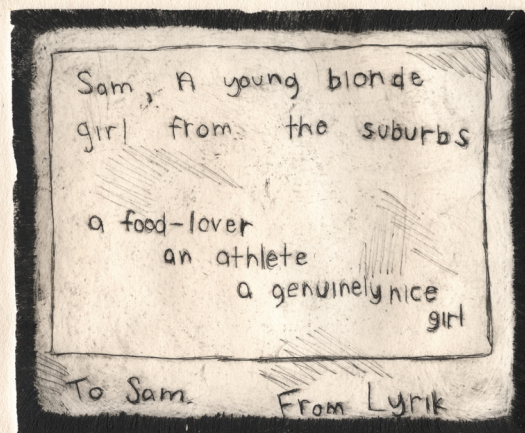 Sam, A young blonde
girl from the suburbs
a food-lover
an athlete
a genuinely nice
girl
To Sam. From Lyrik